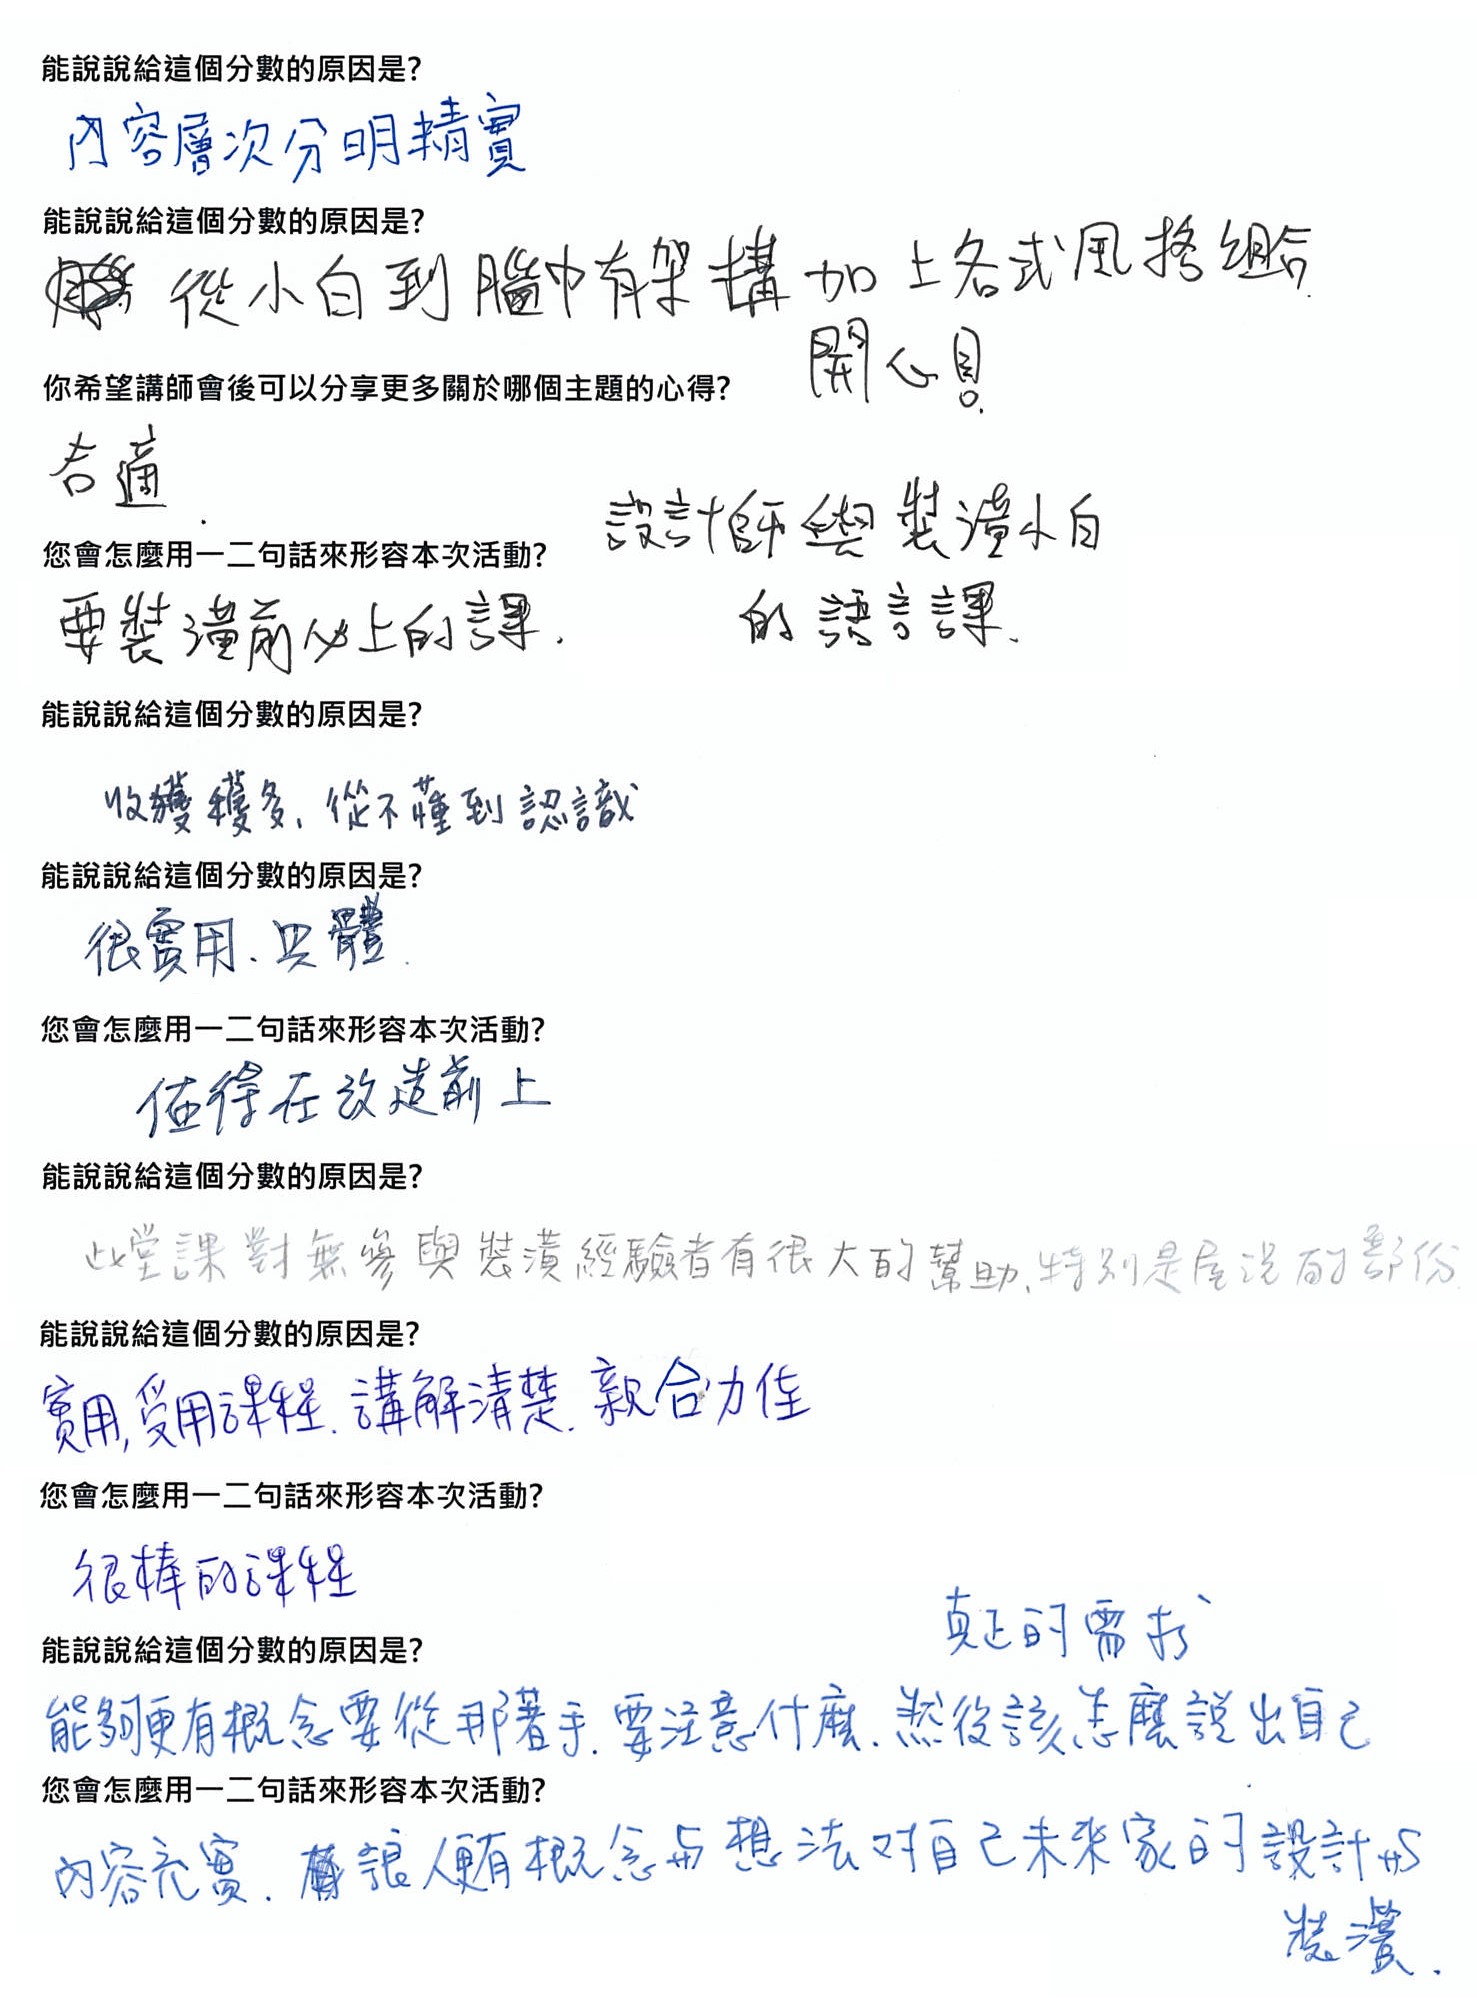 能說說給這個分數的原因是?
內容層次分明精實
能說說給這個分數的原因是?
從小白到腦中有架構 加上各式風格組合
開心見
你希望講師會後可以分享更多關於哪個主題的心得?
合適.
設計師與裝潢小白
的語言課.
您會怎麼用一二句話來形容本次活動?
要裝潢前必上的課.
能說說給這個分數的原因是?
收穫穫多、從不懂到認識
能說說給這個分數的原因是?
很實用、具體.
您會怎麼用一二句話來形容本次活動?
值得在改造前上
能說說給這個分數的原因是?
此堂課對無參與裝潢經驗者有很大的幫助、特別是屋況的部份
能說說給這個分數的原因是?
實用,受用課程、講解清楚、親合力佳
您會怎麼用一二句話來形容本次活動?
很棒的課程
能說說給這個分數的原因是?
能夠更有概念要從那著手、要注意什麼、然後該怎麼說出自己
真正的需求
您會怎麼用一二句話來形容本次活動?
內容充實、讓人更有概念与想法对自己未來家的設計與
裝潢.